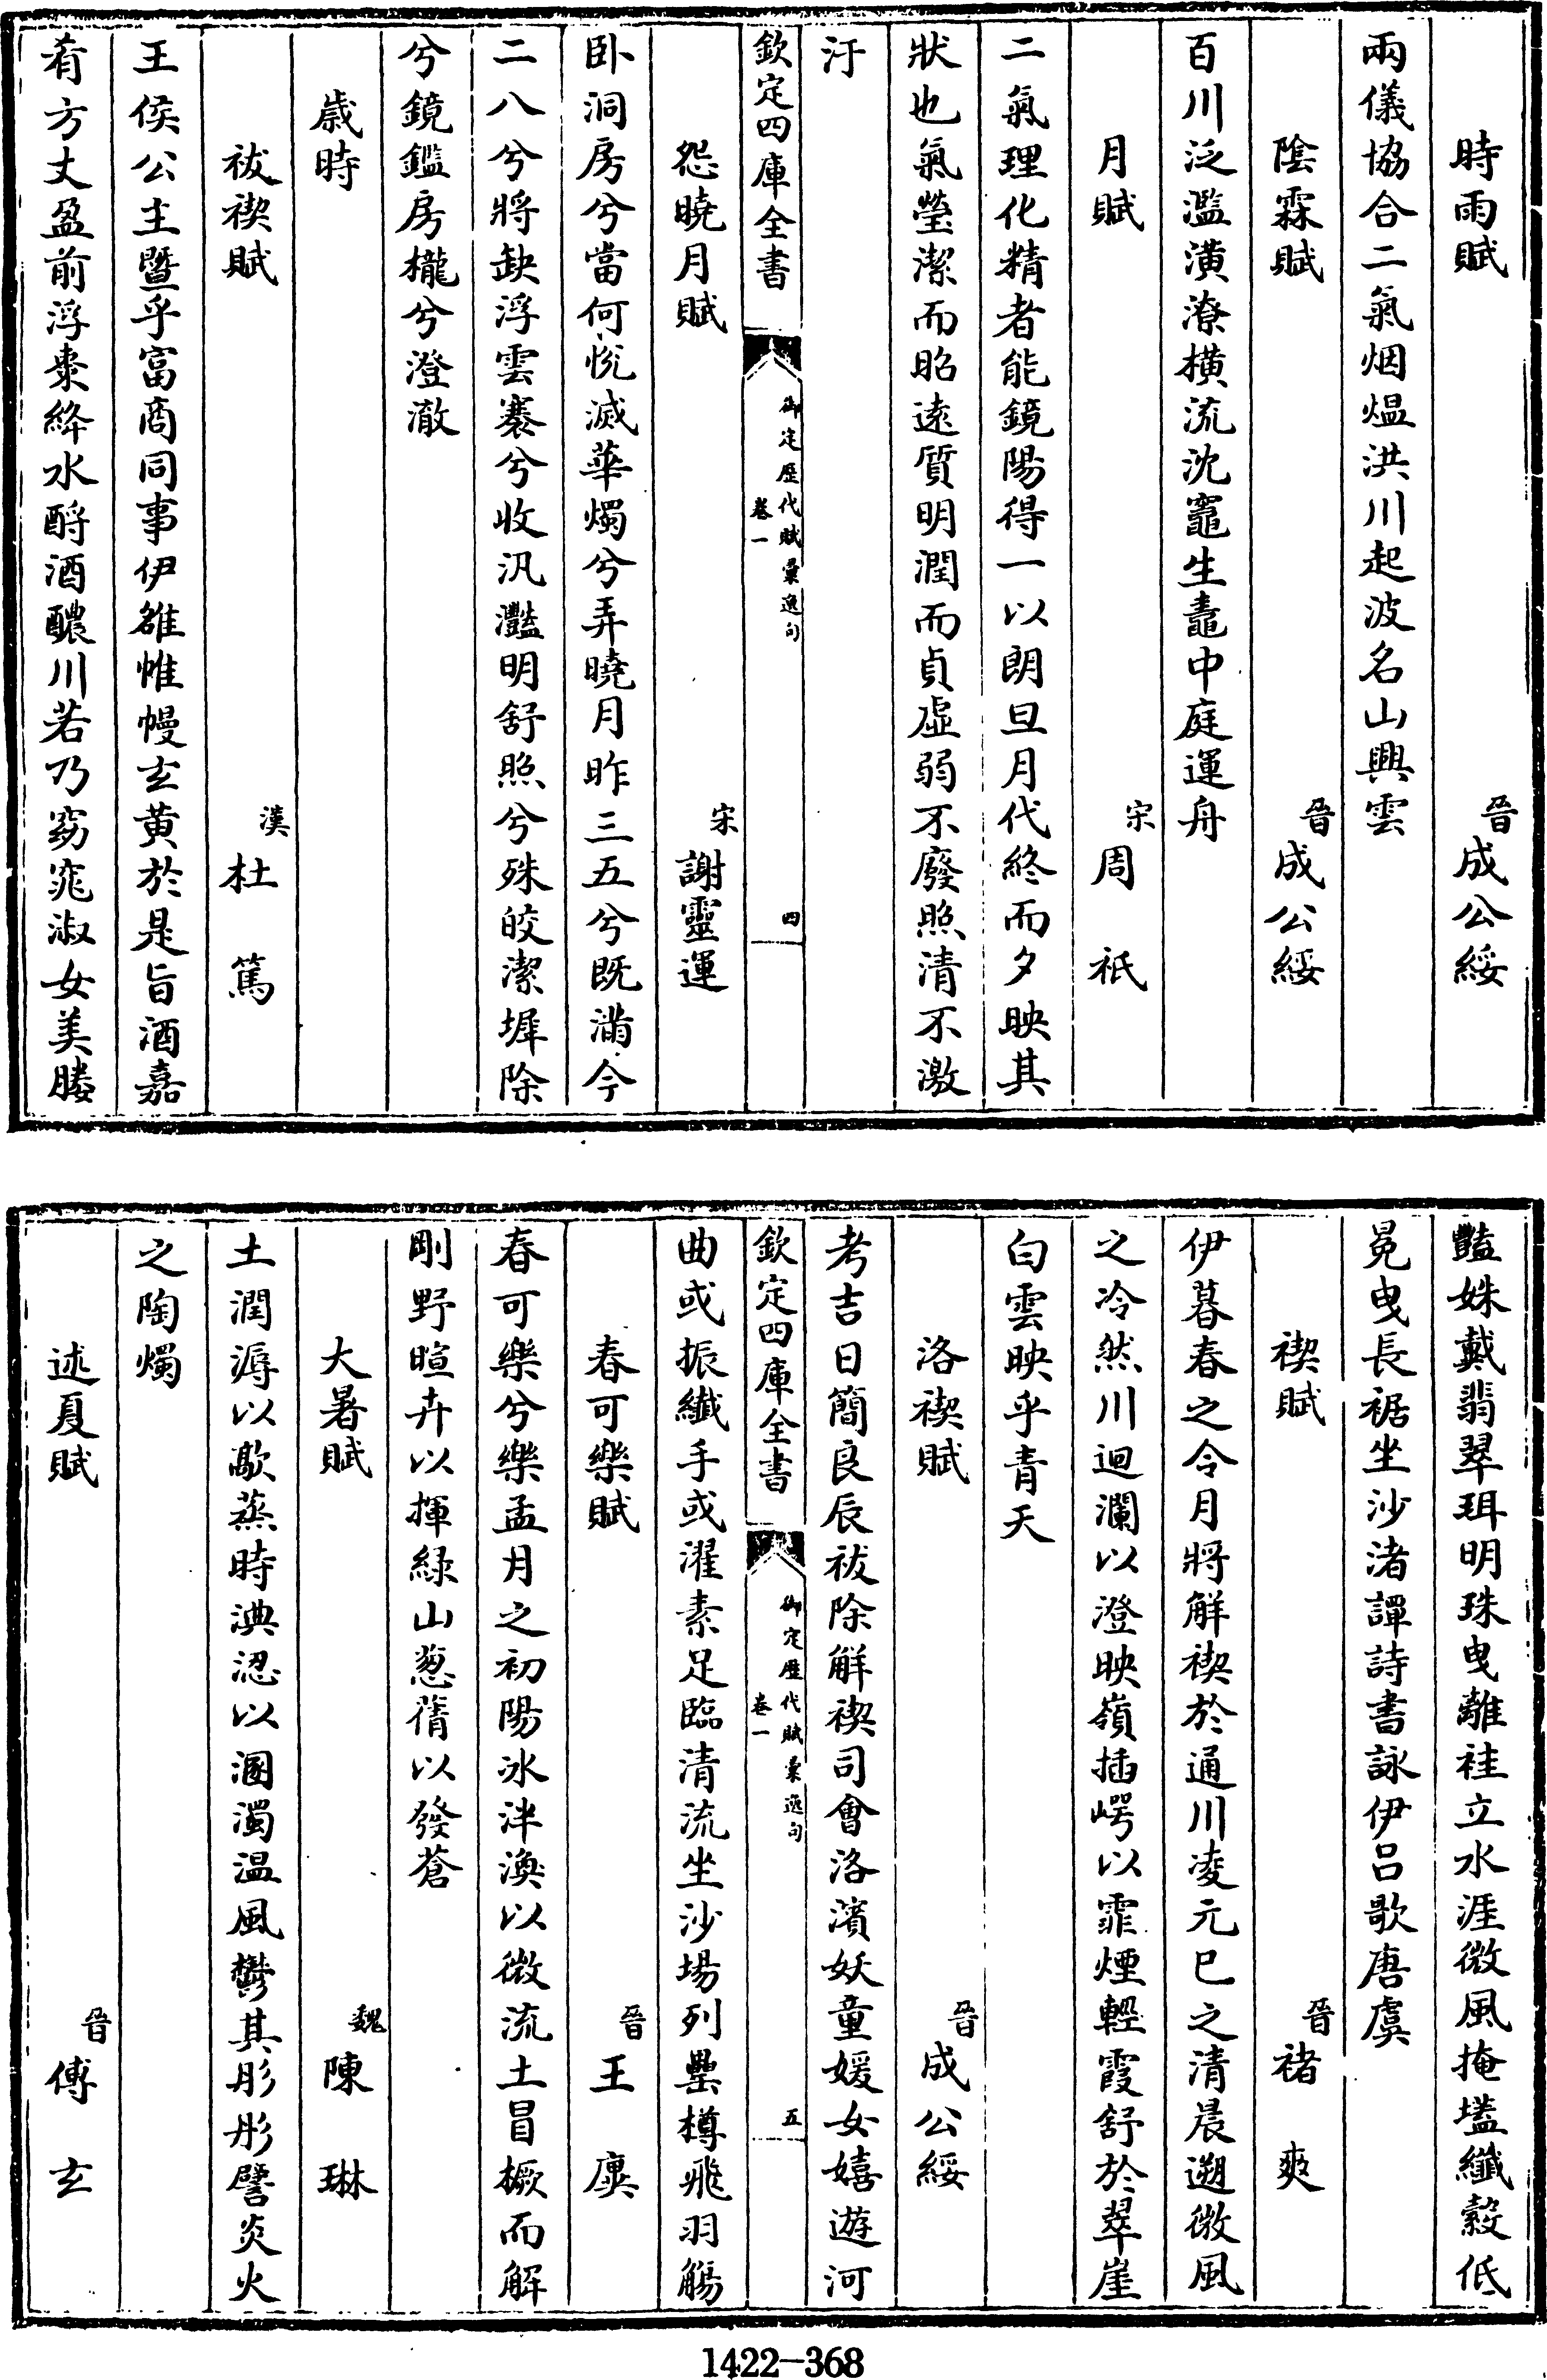 時雨賦　晉成公綏
兩儀協合二氣烟熅洪川起波名山興雲
陰霖賦　晉成公綏
百川泛濫潢潦橫流沈竈生鼃中庭運舟
月賦　宋周祇
二氣理化精者能鏡陽得一以朗旦月代終而夕映其
狀也氣瑩潔而昭遠質明潤而貞虛弱不廢照清不激
汙
欽定四庫全書　御定歷代賦彙逸句　卷一　四
怨曉月賦　宋謝靈運
卧洞房兮當何悅滅華燭兮弄曉月昨三五兮既滿今
二八兮將缺浮雲褰兮收汎灩明舒照兮殊皎潔墀除
兮鏡鑑房櫳兮澄澈
歲時
祓禊賦　漢杜篤
王侯公主暨乎富商同事伊雒帷幔玄黄於是旨酒嘉
肴方丈盈前浮棗絳水酹酒醲川若乃窈窕淑女美媵
豔姝戴翡翠珥明珠曳離袿立水涯微風掩壒纖縠低
冕曳長裾坐沙渚譚詩書詠伊呂歌唐虞
禊賦　晉褚爽
伊暮春之令月將解禊於通川凌元巳之清晨遡微風
之冷然川迴瀾以澄映嶺插崿以霏煙輕霞舒於翠崖
白雲映乎青天
洛禊賦　晉成公綏
考吉日簡良辰祓除解禊司會洛濱妖童媛女嬉遊河
欽定四庫全書　御定歷代賦彙逸句　卷一　五
曲或振纖手或濯素足臨清流坐沙場列罍樽飛羽觴
春可樂賦　晉王廙
春可樂兮樂孟月之初陽冰泮渙以微流土冒橛而解
剛野暄卉以揮緑山葱蒨以發蒼
大暑賦　魏陳琳
土潤溽以歊蒸時淟涊以溷濁温風鬱其彤彤譬炎火
之陶燭
述夏賦　晉傅玄
1422-368